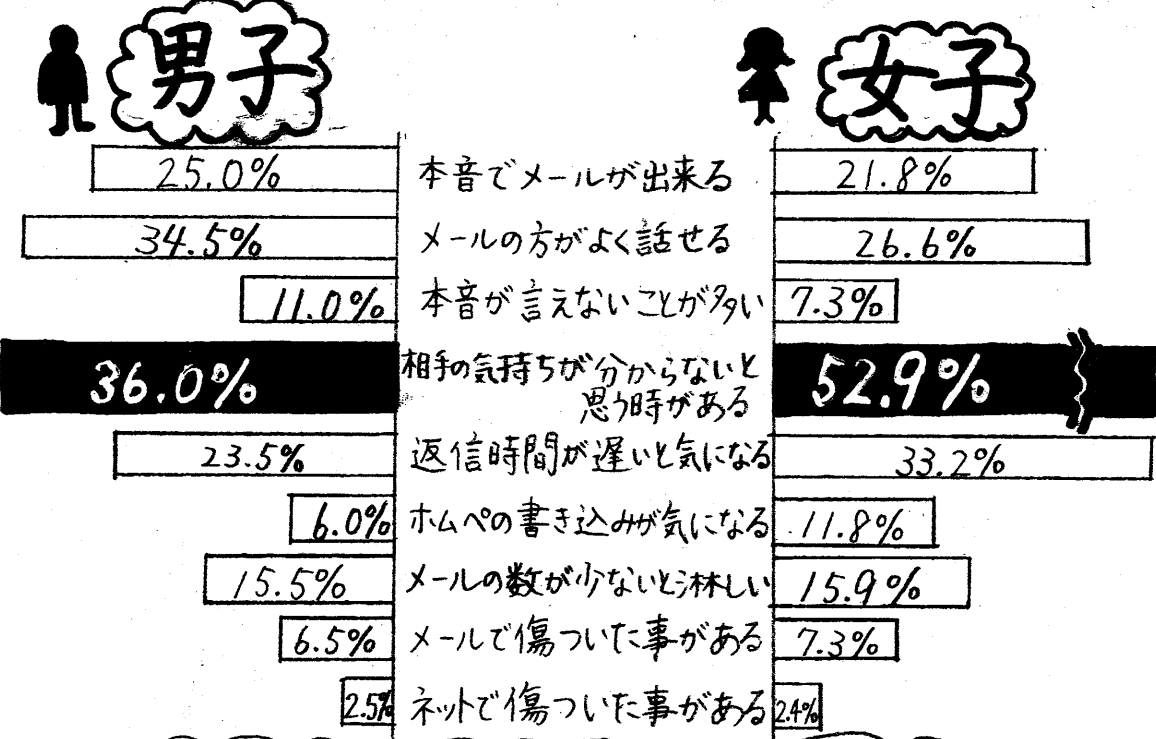 男子 女子
25.0% 本音でメールが出来る 21.8%
34.5% メールの方がよく話せる 26.6%
11.0% 本音が言えないことが多い 7.3%
36.0% 相手の気持ちが分からないと 52.9%
思う時がある
23.5% 返信時間が遅いと気になる 33.2%
6.0% ホムペの書き込みが気になる 11.8%
15.5% メールの数が少ないと淋しい 15.9%
6.5% メールで傷ついた事がある 7.3%
2.5% ネットで傷ついた事がある 2.4%